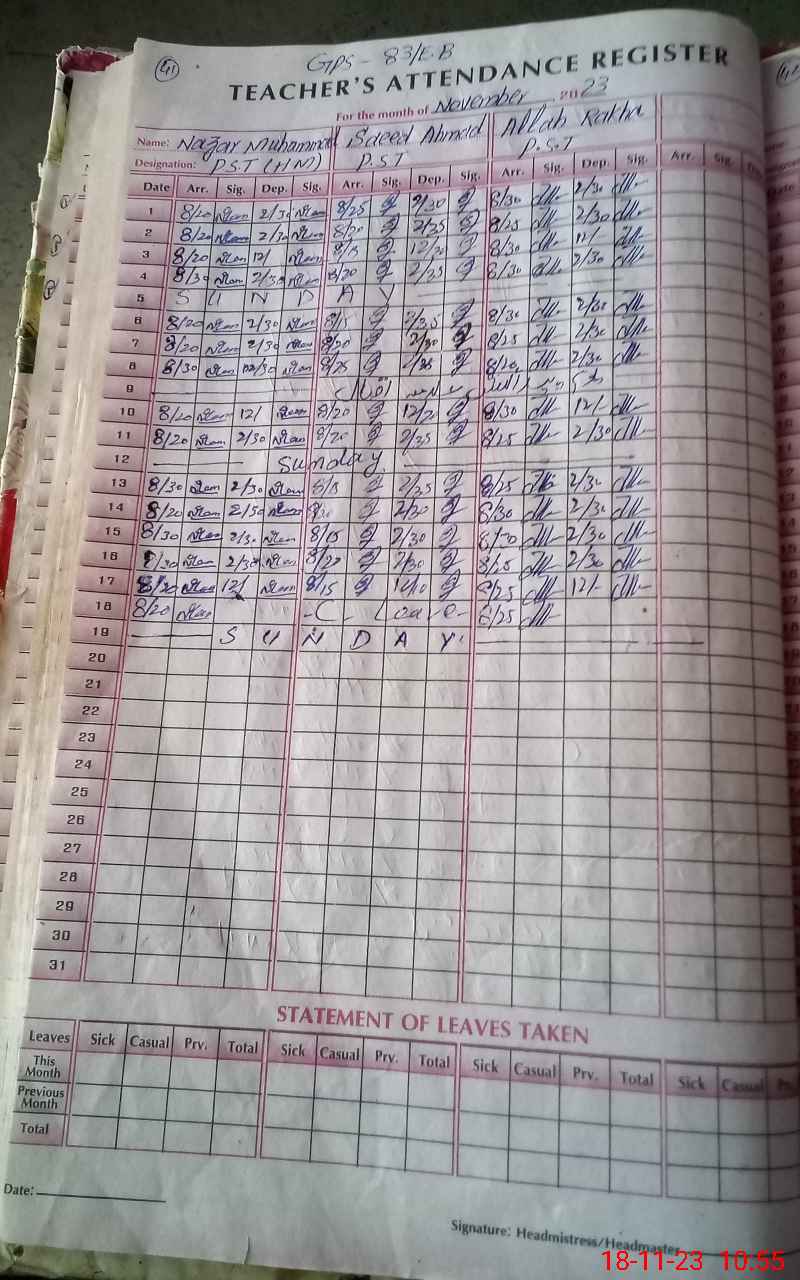 41
GPS - 83/E.B
TEACHER'S ATTENDANCE REGISTER
For the month of November 2023
Name: Nazar Muhammad Saeed Ahmad Allah Rakha
Designation: P.S.T (H M) P.S.T P.S.T
Date Arr. Sig. Dep. Sig. Arr. Sig. Dep. Sig. Arr. Sig. Dep. Sig. Arr. Sig.
1 8/20 2/30 8/25 2/30 8/30 2/30
2 8/20 2/30 8/20 2/35 8/25 2/30
3 8/20 12/ 8/15 12/20 8/30 12/-
4 8/30 2/30 8/20 2/25 8/30 2/30
5 S U N D A Y
6 8/20 2/30 8/15 2/35 8/30 2/30
7 8/20 2/30 8/20 2/30 8/25 2/30
8 8/30 2/30 8/25 2/35 8/20 2/30
9
10 8/20 12/ 8/20 12/20 8/30 12/-
11 8/20 2/30 8/20 2/35 8/25 2/30
12 Sunday
13 8/30 2/30 8/15 2/35 8/25 2/30
14 8/20 2/30 2/30 8/30 2/30
15 8/30 2/30 8/15 2/30 8/30 2/30
16 8/30 2/30 8/22 2/30 8/25 2/30
17 8/20 12/ 8/15 12/10 8/25 12/-
18 8/20 C. Leave 8/25
19 S U N D A Y
20
21
22
23
24
25
26
27
28
29
30
31
STATEMENT OF LEAVES TAKEN
Leaves Sick Casual Prv. Total Sick Casual Prv. Total Sick Casual Prv. Total Sick Casual
This Month
Previous Month
Total
Date:
Signature: Headmistress/Headmaster
18-11-23 10:55